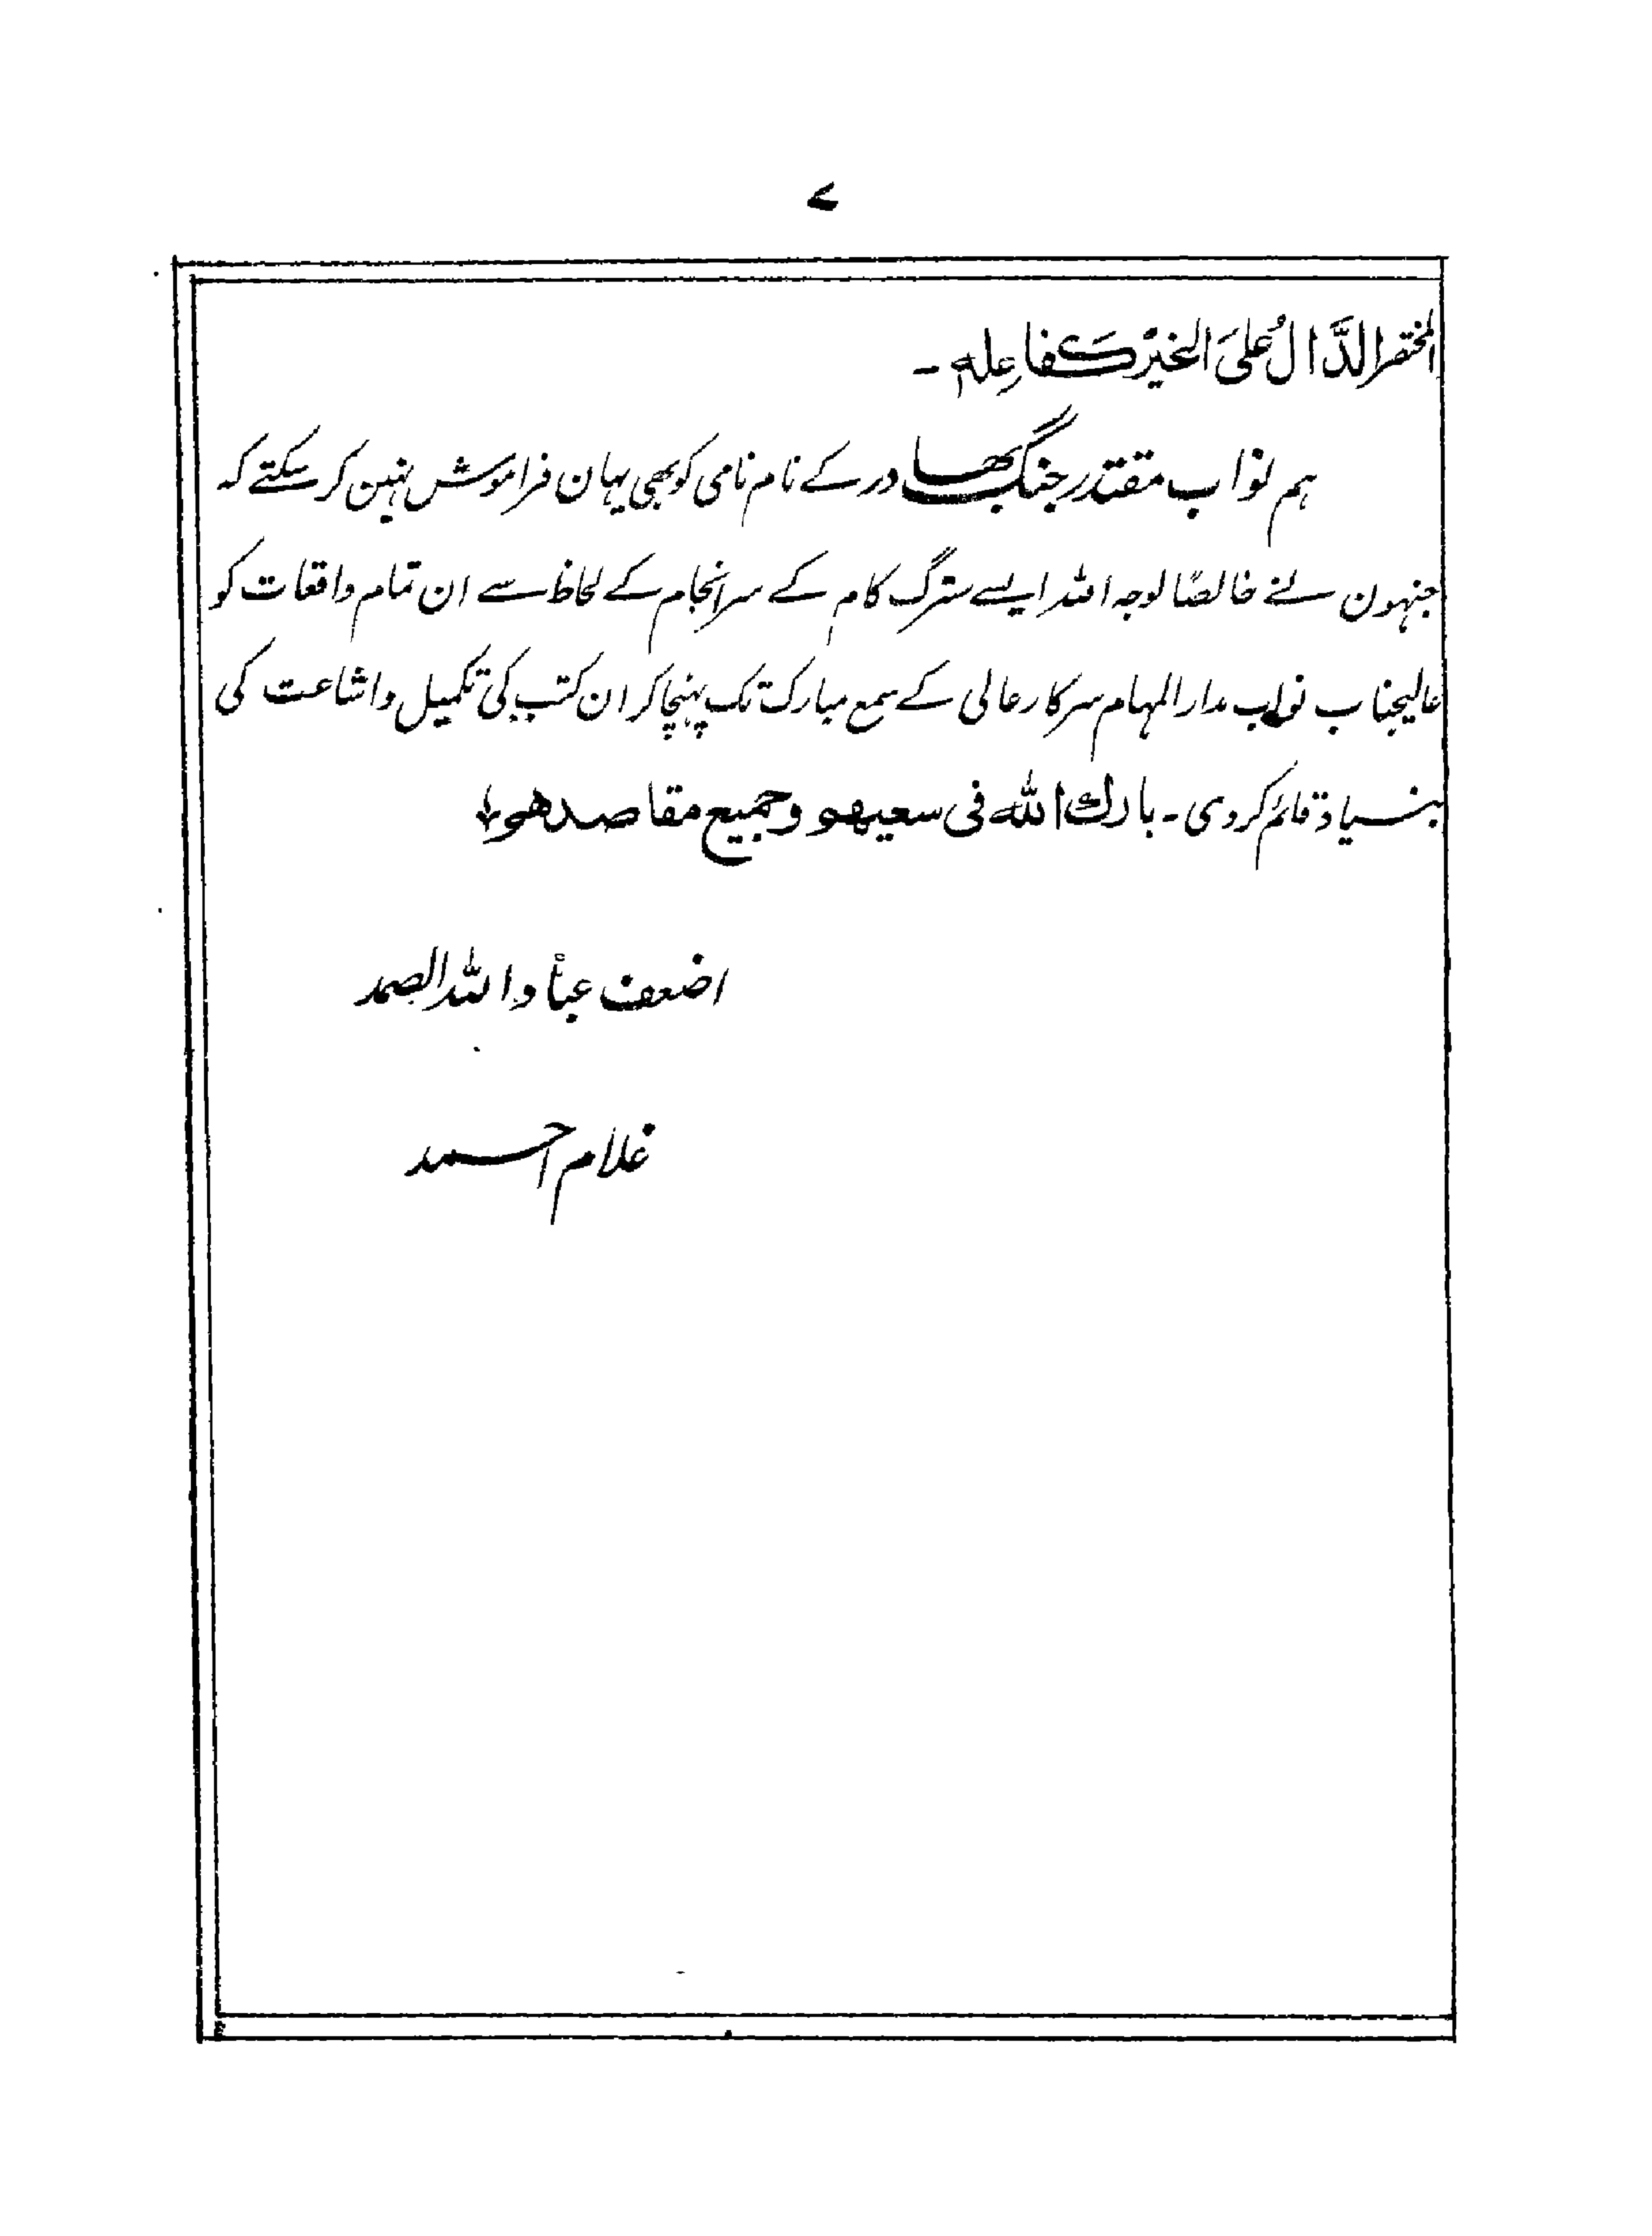 ۷
المختصر الدَّالُ عَلیَ الخیرْ کَفاعِلہٖ ۔
ہم نواب مقتدر جنگ بہادر کے نام نامی کو بھی یہان فراموش نہین کر سکتے کہ
جنہون نے خالصًا لوجہ اللہ ایسے سترگ کام کے سرانجام کے لحاظ سے ان تمام واقعات کو
عالیجناب نواب مدارالمہام سرکار عالی کے سمع مبارک تک پہنچا کر ان کتب کی تکمیل و اشاعت کی
بنسیاد قائم کر دی ۔ بارك الله فی سعیھم وجمیع مقاصدھم
اضعف عباد اللہ الصمد
غلام احمد